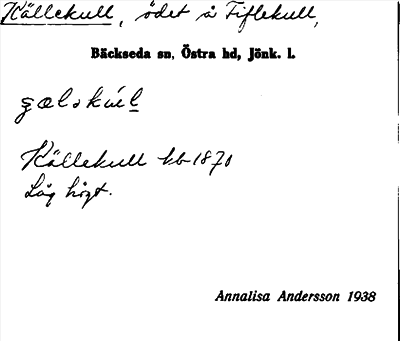 Källekull, ödet å Fiflekull,
Bäckseda sn, Östra hd, Jönk. l.
Källekull kb 1870
Låg högt.
Annalisa Andersson 1938